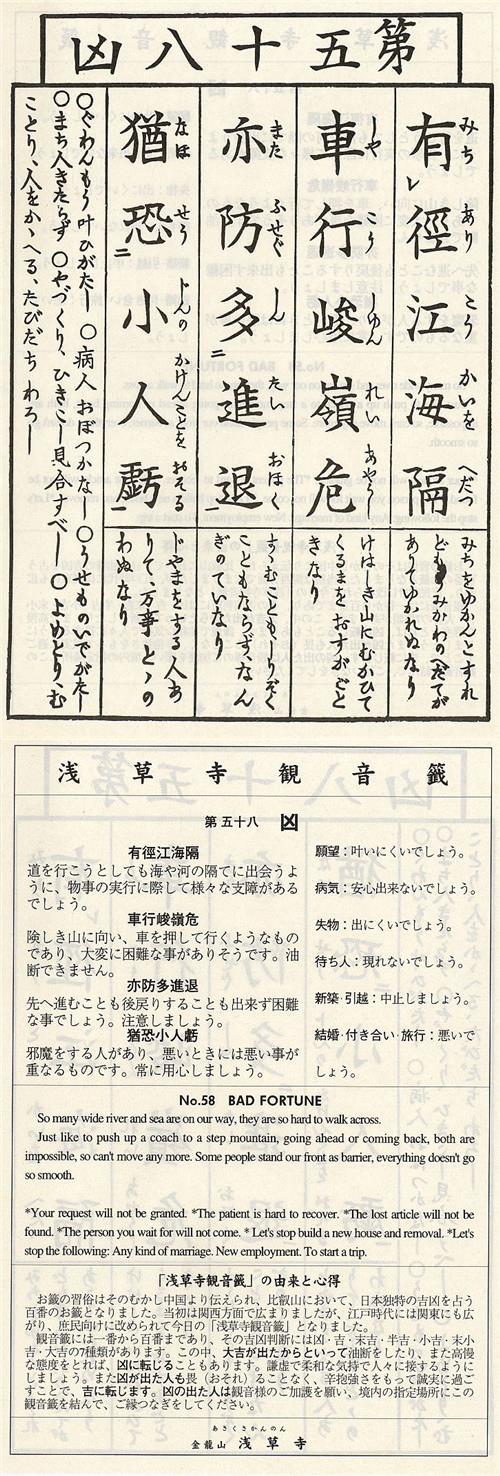 第五十八凶
みち あり こう かいを へだつ
有レ徑江海隔
みちをゆかんとすれ
どもうみかわのへだてが
ありてゆかれぬなり
しや こう しゆん れい あやうし
車行峻嶺危
けはしき山にむかひて
くるまをおすがごと
きなり
また ふせぐ しん たい おほく
亦防二多進退一
すゝむこともしりぞく
こともならず、なん
ぎのていなり
なほ せう じんの かけんことを おそる
猶恐二小人虧一
じやまをする人あ
りて万事とゝの
わぬなり
○ぐわんもう叶ひがたし ○病人おぼつかなし ○うせものいでがたし
○まち人きたらず ○やづくり、ひきこし見合すべし ○よめとり、む
ことり、人をかゝへる、たびだちわろし
浅草寺観音籤
第五十八 凶
有徑江海隔
道を行こうとしても海や河の隔てに出会うよ
うに、物事の実行に際して様々な支障がある
でしょう。
車行峻嶺危
険しき山に向い、車を押して行くようなもの
であり、大変に困難な事がありそうです。油
断できません。
亦防多進退
先へ進むことも後戻りすることも出来ず困難
な事でしょう。注意しましょう。
猶恐小人虧
邪魔をする人があり、悪いときには悪い事が
重なるものです。常に用心しましょう。
願望：叶いにくいでしょう。
病気：安心出来ないでしょう。
失物：出にくいでしょう。
待ち人：現れないでしょう。
新築・引越：中止しましょう。
結婚・付き合い・旅行：悪いで
しょう。
No.58 BAD FORTUNE
So many wide river and sea are on our way, they are so hard to walk across.
Just like to push up a coach to a step mountain, going ahead or coming back, both are
impossible, so can't move any more. Some people stand our front as barrier, everything doesn't go
so smooth.
*Your request will not be granted. *The patient is hard to recover. *The lost article will not be
found. *The person you wait for will not come. * Let's stop build a new house and removal. *Let's
stop the following: Any kind of marriage. New employment. To start a trip.
「浅草寺観音籤」の由来と心得
お籤の習俗はそのむかし中国より伝えられ、比叡山において、日本独特の吉凶を占う
百番のお籤となりました。当初は関西方面で広まりましたが、江戸時代には関東にも広
がり、庶民向けに改められて今日の「浅草寺観音籤」となりました。
観音籤には一番から百番まであり、その吉凶判断には凶・吉・末吉・半吉・小吉・末小
吉・大吉の7種類があります。この中、大吉が出たからといって油断をしたり、また高慢
な態度をとれば、凶に転じることもあります。謙虚で柔和な気持で人々に接するようにし
ましょう。また凶が出た人も畏（おそれ）ることなく、辛抱強さをもって誠実に過ご
すことで、吉に転じます。凶の出た人は観音様のご加護を願い、境内の指定場所にこの
観音籤を結んで、ご縁つなぎをしてください。
あさくさかんのん
金龍山 浅草寺